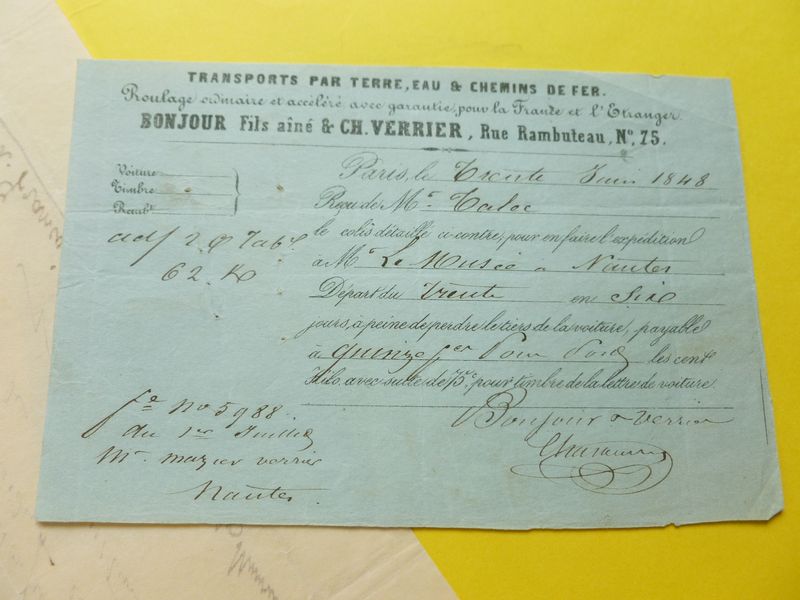 TRANSPORTS PAR TERRE, EAU & CHEMINS DE FER.
Roulage ordinaire et accéléré avec garantie, pour la France et l'Etranger.
BONJOUR Fils aîné & CH. VERRIER, Rue Rambuteau, No. 75.
Voiture
Timbre
Rembt.
Paris, le Trente Juin 1848
Reçu de Mr.
le colis détaillé ci-contre, pour en faire l'expédition
à Mr Le Musée à Nantes
Départ du Trente en Six
jours, à peine de perdre le tiers de la voiture, payable
à quinze les cent
Kilo. avec suite de 75c. pour timbre de la lettre de voiture.
62 K
No 5988
du 1er Juillet
Mr mazier verrier
Nantes
Bonjour & Verrier